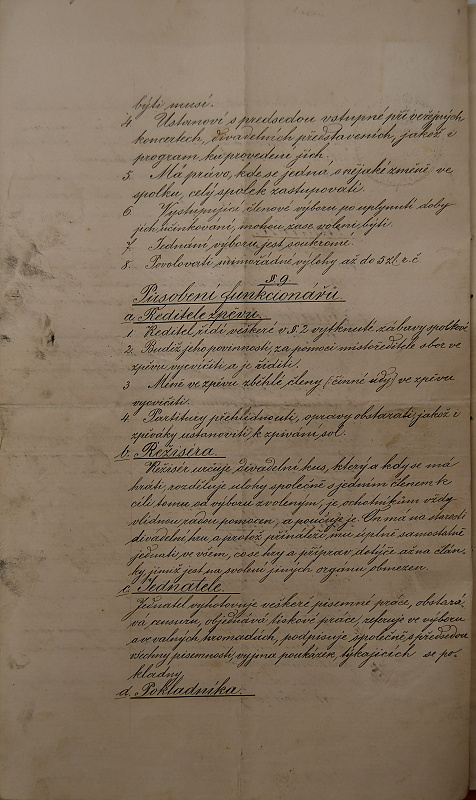 býti musí.
4. Ustanoví s předsedou vstupné při veřejných
koncertech, divadelních představeních, jakož i
program ku provedení jich.
5. Má právo, kde se jedná o nějaké změně, ve
spolku, celý spolek zastupovati.
6 Vystupující členové výboru po uplynutí doby
jich účinkování, mohou zase voleni býti.
7. Jednání výboru jest soukromé.
8. Povolovati mimořádné výlohy až do 5 zl. r. č
§ 9.
Působení funkcionářů.
a. Ředitele zpěvu.
1. Ředitel, řídí veškeré v § 2 vytknuté zábavy spolkové
2. Budiž jeho povinností, za pomoci místoředitele sbor ve
zpěvu vycvičiti a je říditi.
3 Méně ve zpěvu zběhlé členy (činné údy) ve zpěvu
vycvičiti.
4. Partitury přehlédnouti, opravy obstarati, jakož i
zpěváky ustanoviti k zpívání sol.
b. Režiséra.
Režisér určuje, divadelní kus, který a kdy se má
hráti, rozděluje úlohy společně s jedním členem k
cíli tomu od výboru zvoleným, je ochotníkům vždy
vlídnou radou pomocen, a poučuje je. On má na starosti
divadelní hru, a protož přináleží mu úplně samostatně
jednati ve všem, co se hry a příprav dotýče až na člán-
ky, jimiž jest na svolení jiných orgánů, obmezen.
c Jednatele.
Jednatel vyhotovuje veškeré písemné práce, obstará-
vá censuru, objednává tiskové práce, referuje ve výboru
a ve valných hromadách, podpisuje společně s předsedou
všechny písemnosti, vyjma poukázek, týkajících se po-
kladny.
d. Pokladníka.